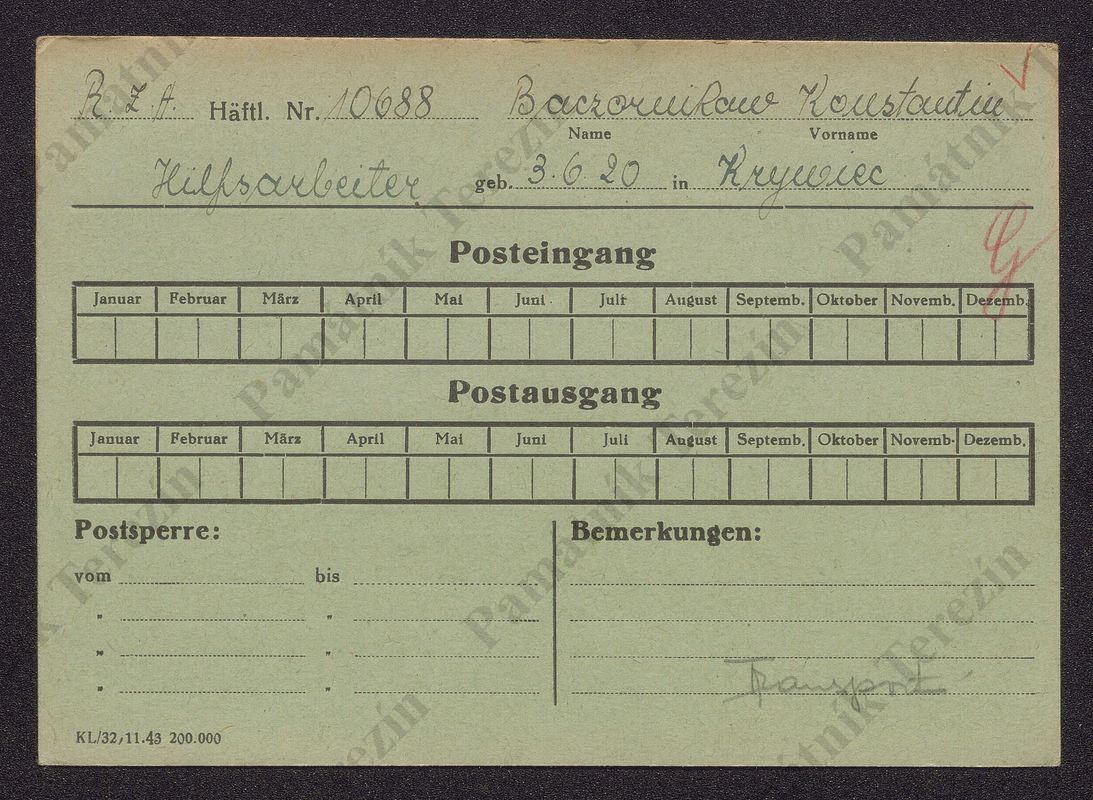 R. Z. A. Häftl. Nr. 10688 Baczornikow Konstantin
Name Vorname
Hilfsarbeiter geb. 3.6.20 in Krywiec
G
Posteingang
Januar Februar März April Mai Juni Juli August Septemb. Oktober Novemb. Dezemb.
Postausgang
Januar Februar März April Mai Juni Juli August Septemb. Oktober Novemb. Dezemb.
Postsperre: Bemerkungen:
vom bis
" "
" "
" "
Transport
KL/32, 11.43 200.000
Památník Terezín